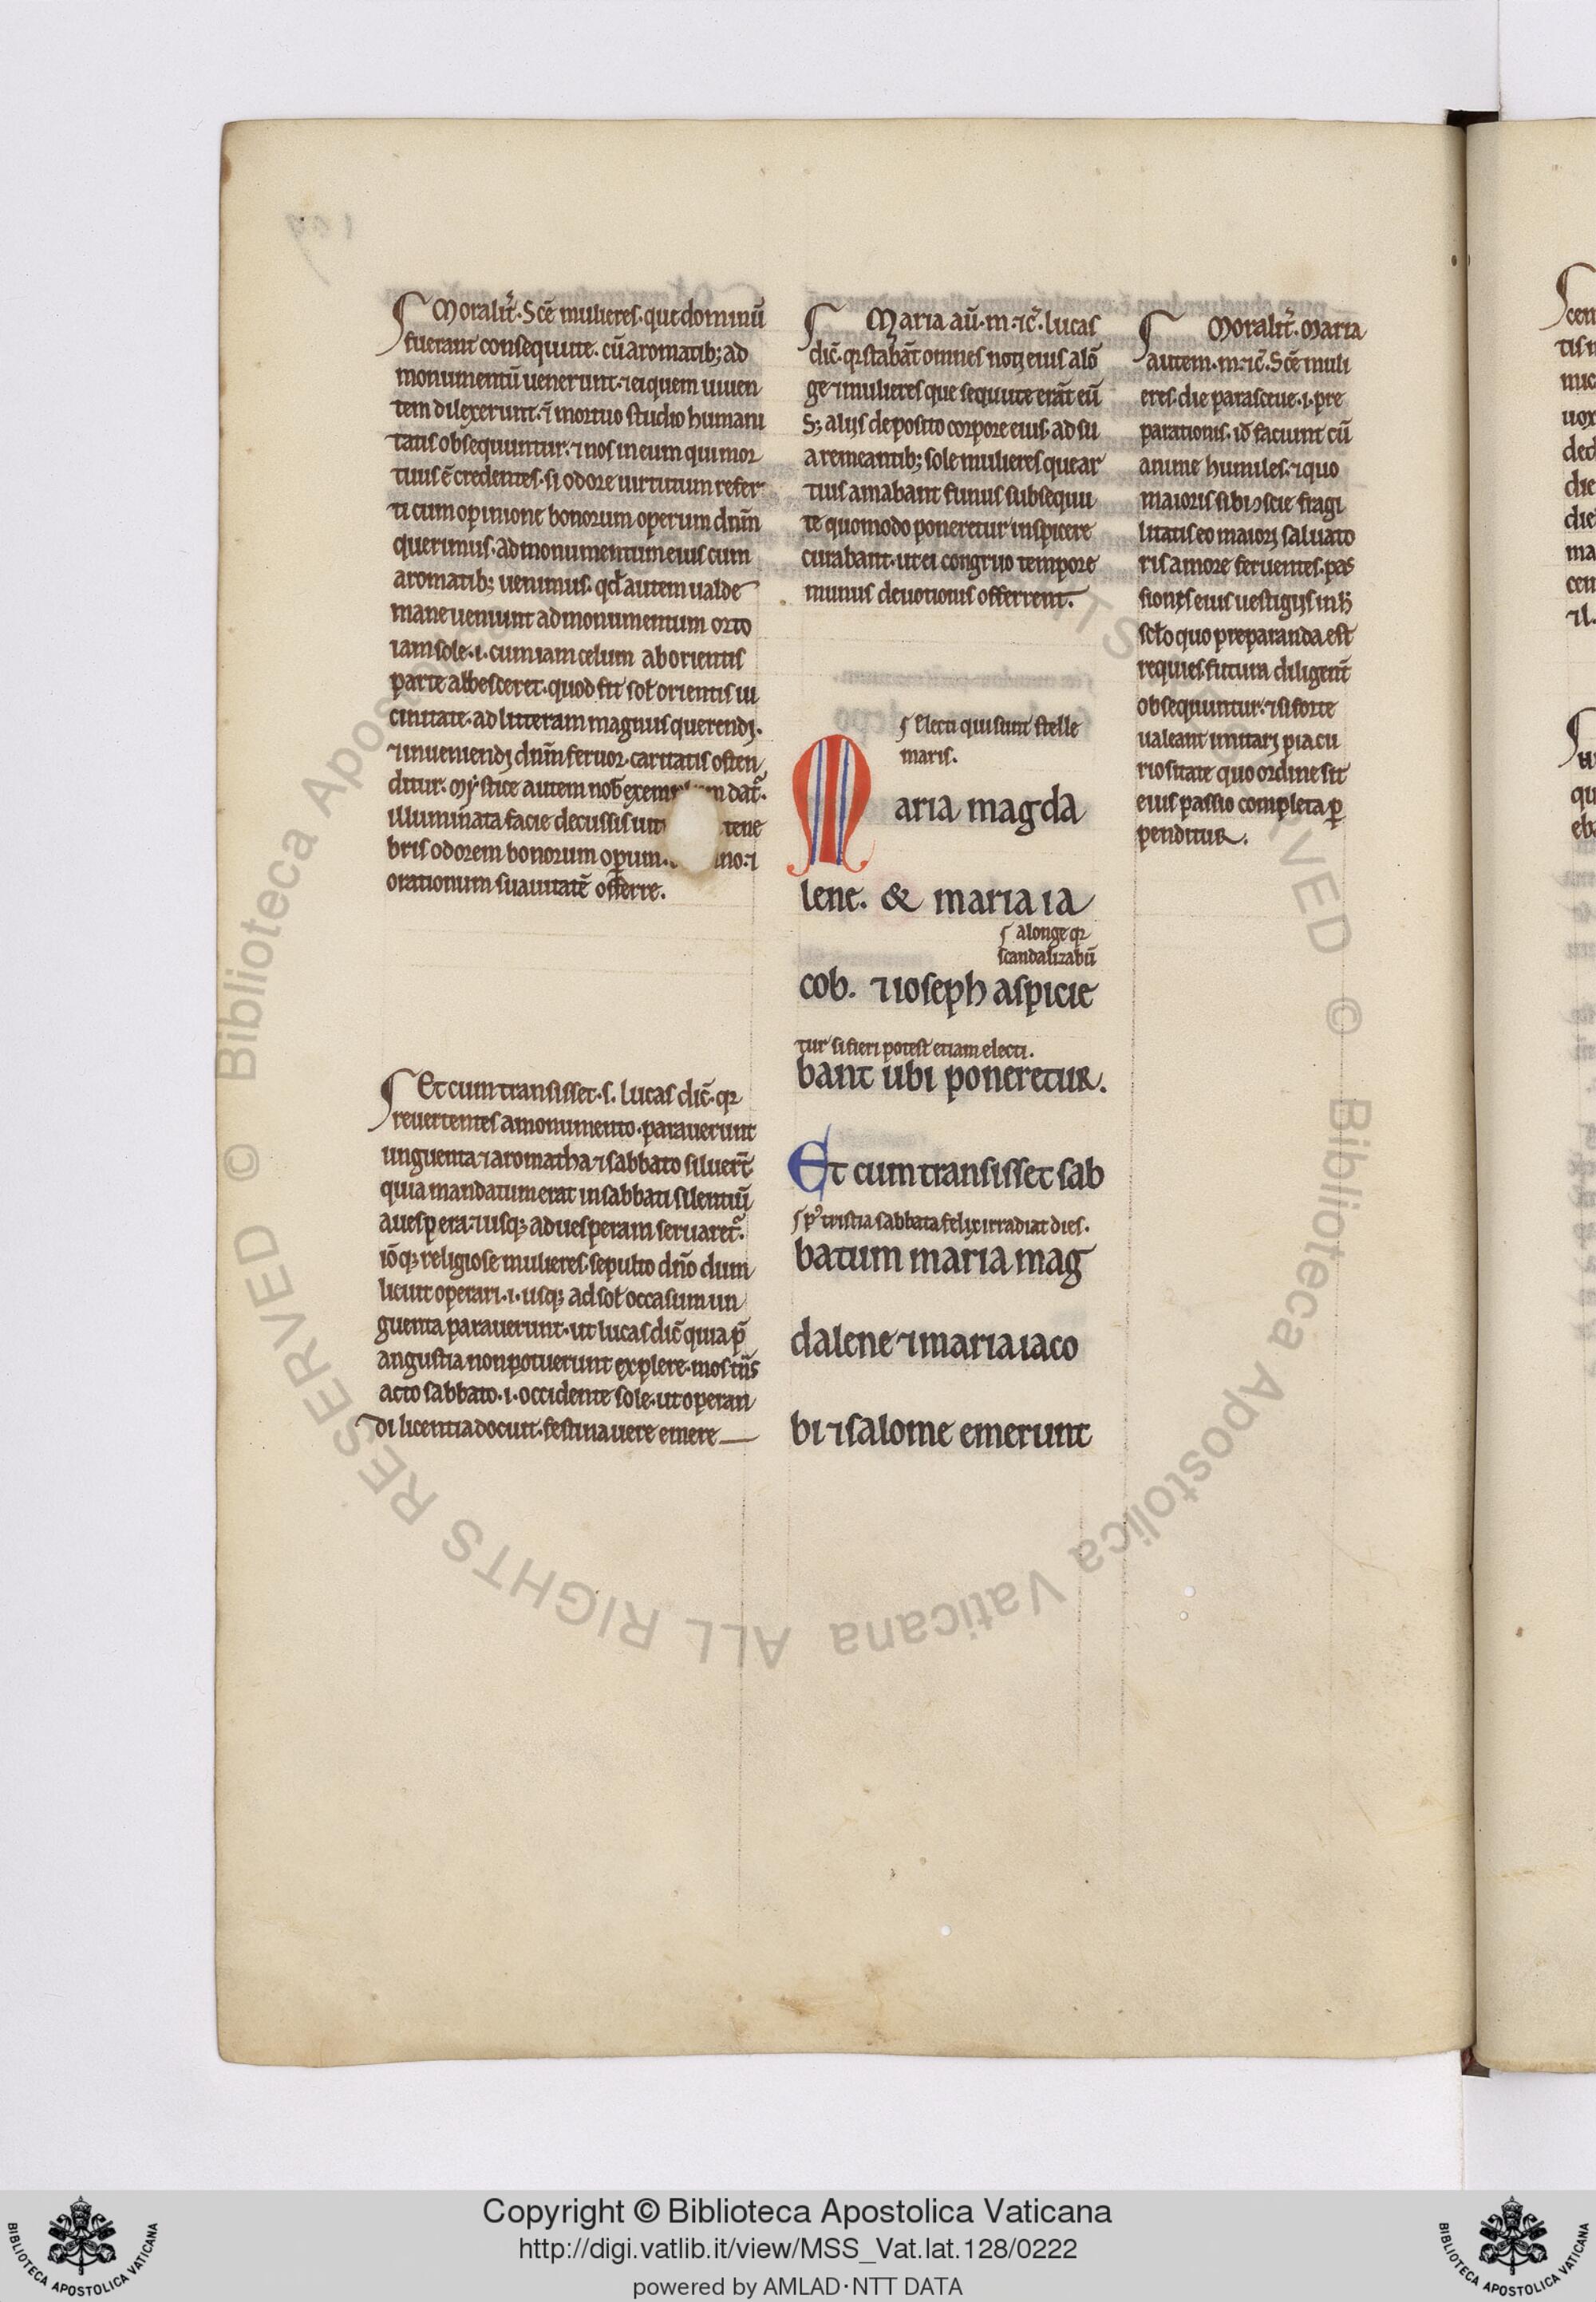 Moralit̃. Scē mulieres. que dominū
fuerant consequute. cū aromatib; ad
monumentū uenerunt. ⁊ ei quem uiuen
tem dilexerunt. ī mortuo studio humani
tatis obsequuntur. ⁊ nos in eum qui mor
tuus ē credentes. si odore uirtutum refer
ti cum opinione bonorum operum dnm̄
querimus. ad monumentum eius cum
aromatib; uenimus. qd̄ autem ualde
mane ueniunt ad monumentum orto
iam sole. i. cum iam celum ab orientis
parte albesceret. quod fit sol̄ orientis ui
cinitate. ad litteram magnus querendi.
⁊ inueniendi dnm̄ feruor. caritatis osten
ditur. Mẏstice autem nob̄ dat̃.
illuminata facie decussis tene
bris odorem bonorum op̱um. ⁊
orationum suauitatē offerre.
Et cum transisset. s. lucas dic̄. qꝛ
reuertentes a monumento. parauerunt
unguenta ⁊ aromatha ⁊ sabbato siluer̄t
quia mandatum erat in sabbati silentiū
a uesp̱era. ⁊ usq; ad uesperam seruaret̃.
iō q; religiose mulieres. sepulto dn̄o dum
licuit operari. i. usq; ad sol̄ occasum un
guenta parauerunt. ut lucas dic̄ quia p̱
angustia non potuerunt explere. mox t̄ns
acto sabbato. i. occidente sole. ut operan
di licentia docuit. festinauere emere
Maria aū. m. ⁊ c̄. lucas
dic̄. qꝛ stabāt omnes noti eius a lō
ge ⁊ mulieres que sequute erāt eū
S; alijs deposito corpore eius. ad su
a remeantib; sole mulieres que ar
tius amabant funus subsequu
te quomodo poneretur inspicere
curabant. ut ei congruo tempore
munus deuotionis offerrent.
Electi qui sunt stelle
maris.
Maria magda
lene. & maria ia
a longe qꝛ
scandalizabū
cob. ⁊ ioseph aspicie
tur si fieri potest etiam electi.
bant ubi poneretur.
Et cum transisset sab
p̱ᵒ tristia sabbata felix irradiat dies.
batum maria mag
dalene ⁊ maria iaco
bi ⁊ salome emerunt
Moralit̃. Maria
autem. m. ⁊ c̄. Scē muli
eres. die parasceue. i. pre
parationis. iō faciunt cū
anime humiles. ⁊ quo
maioris sibi ↄscie fragi
litatis eo maiori saluato
ris amore feruentes. pas
sionis eius uestigijs in h̄
sc̄lo quo preparanda est
requies futura diligent̄
obsequuntur. ⁊ si forte
ualeant imitari pia cu
riositate quo ordine sit
eius passio completa p̱
penditur.
Copyright © Biblioteca Apostolica Vaticana
http://digi.vatlib.it/view/MSS_Vat.lat.128/0222
powered by AMLAD·NTT DATA
BIBLIOTECA APOSTOLICA VATICANA
BIBLIOTECA APOSTOLICA VATICANA
© Biblioteca Apostolica Vaticana ALL RIGHTS RESERVED